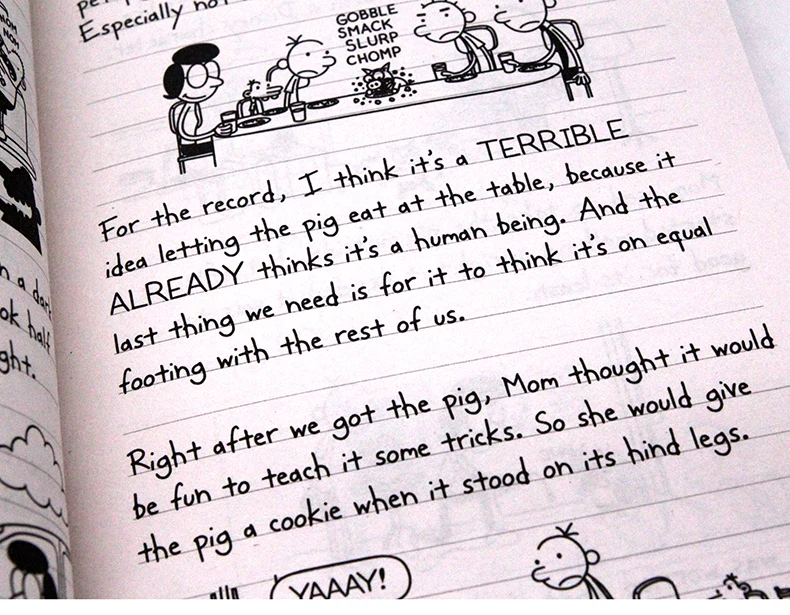 Especially
GOBBLE
SMACK
SLURP
CHOMP
For the record, I think it's a TERRIBLE
idea letting the pig eat at the table, because it
ALREADY thinks it's a human being. And the
last thing we need is for it to think it's on equal
footing with the rest of us.
Right after we got the pig, Mom thought it would
be fun to teach it some tricks. So she would give
the pig a cookie when it stood on its hind legs.
YAAAY!
half